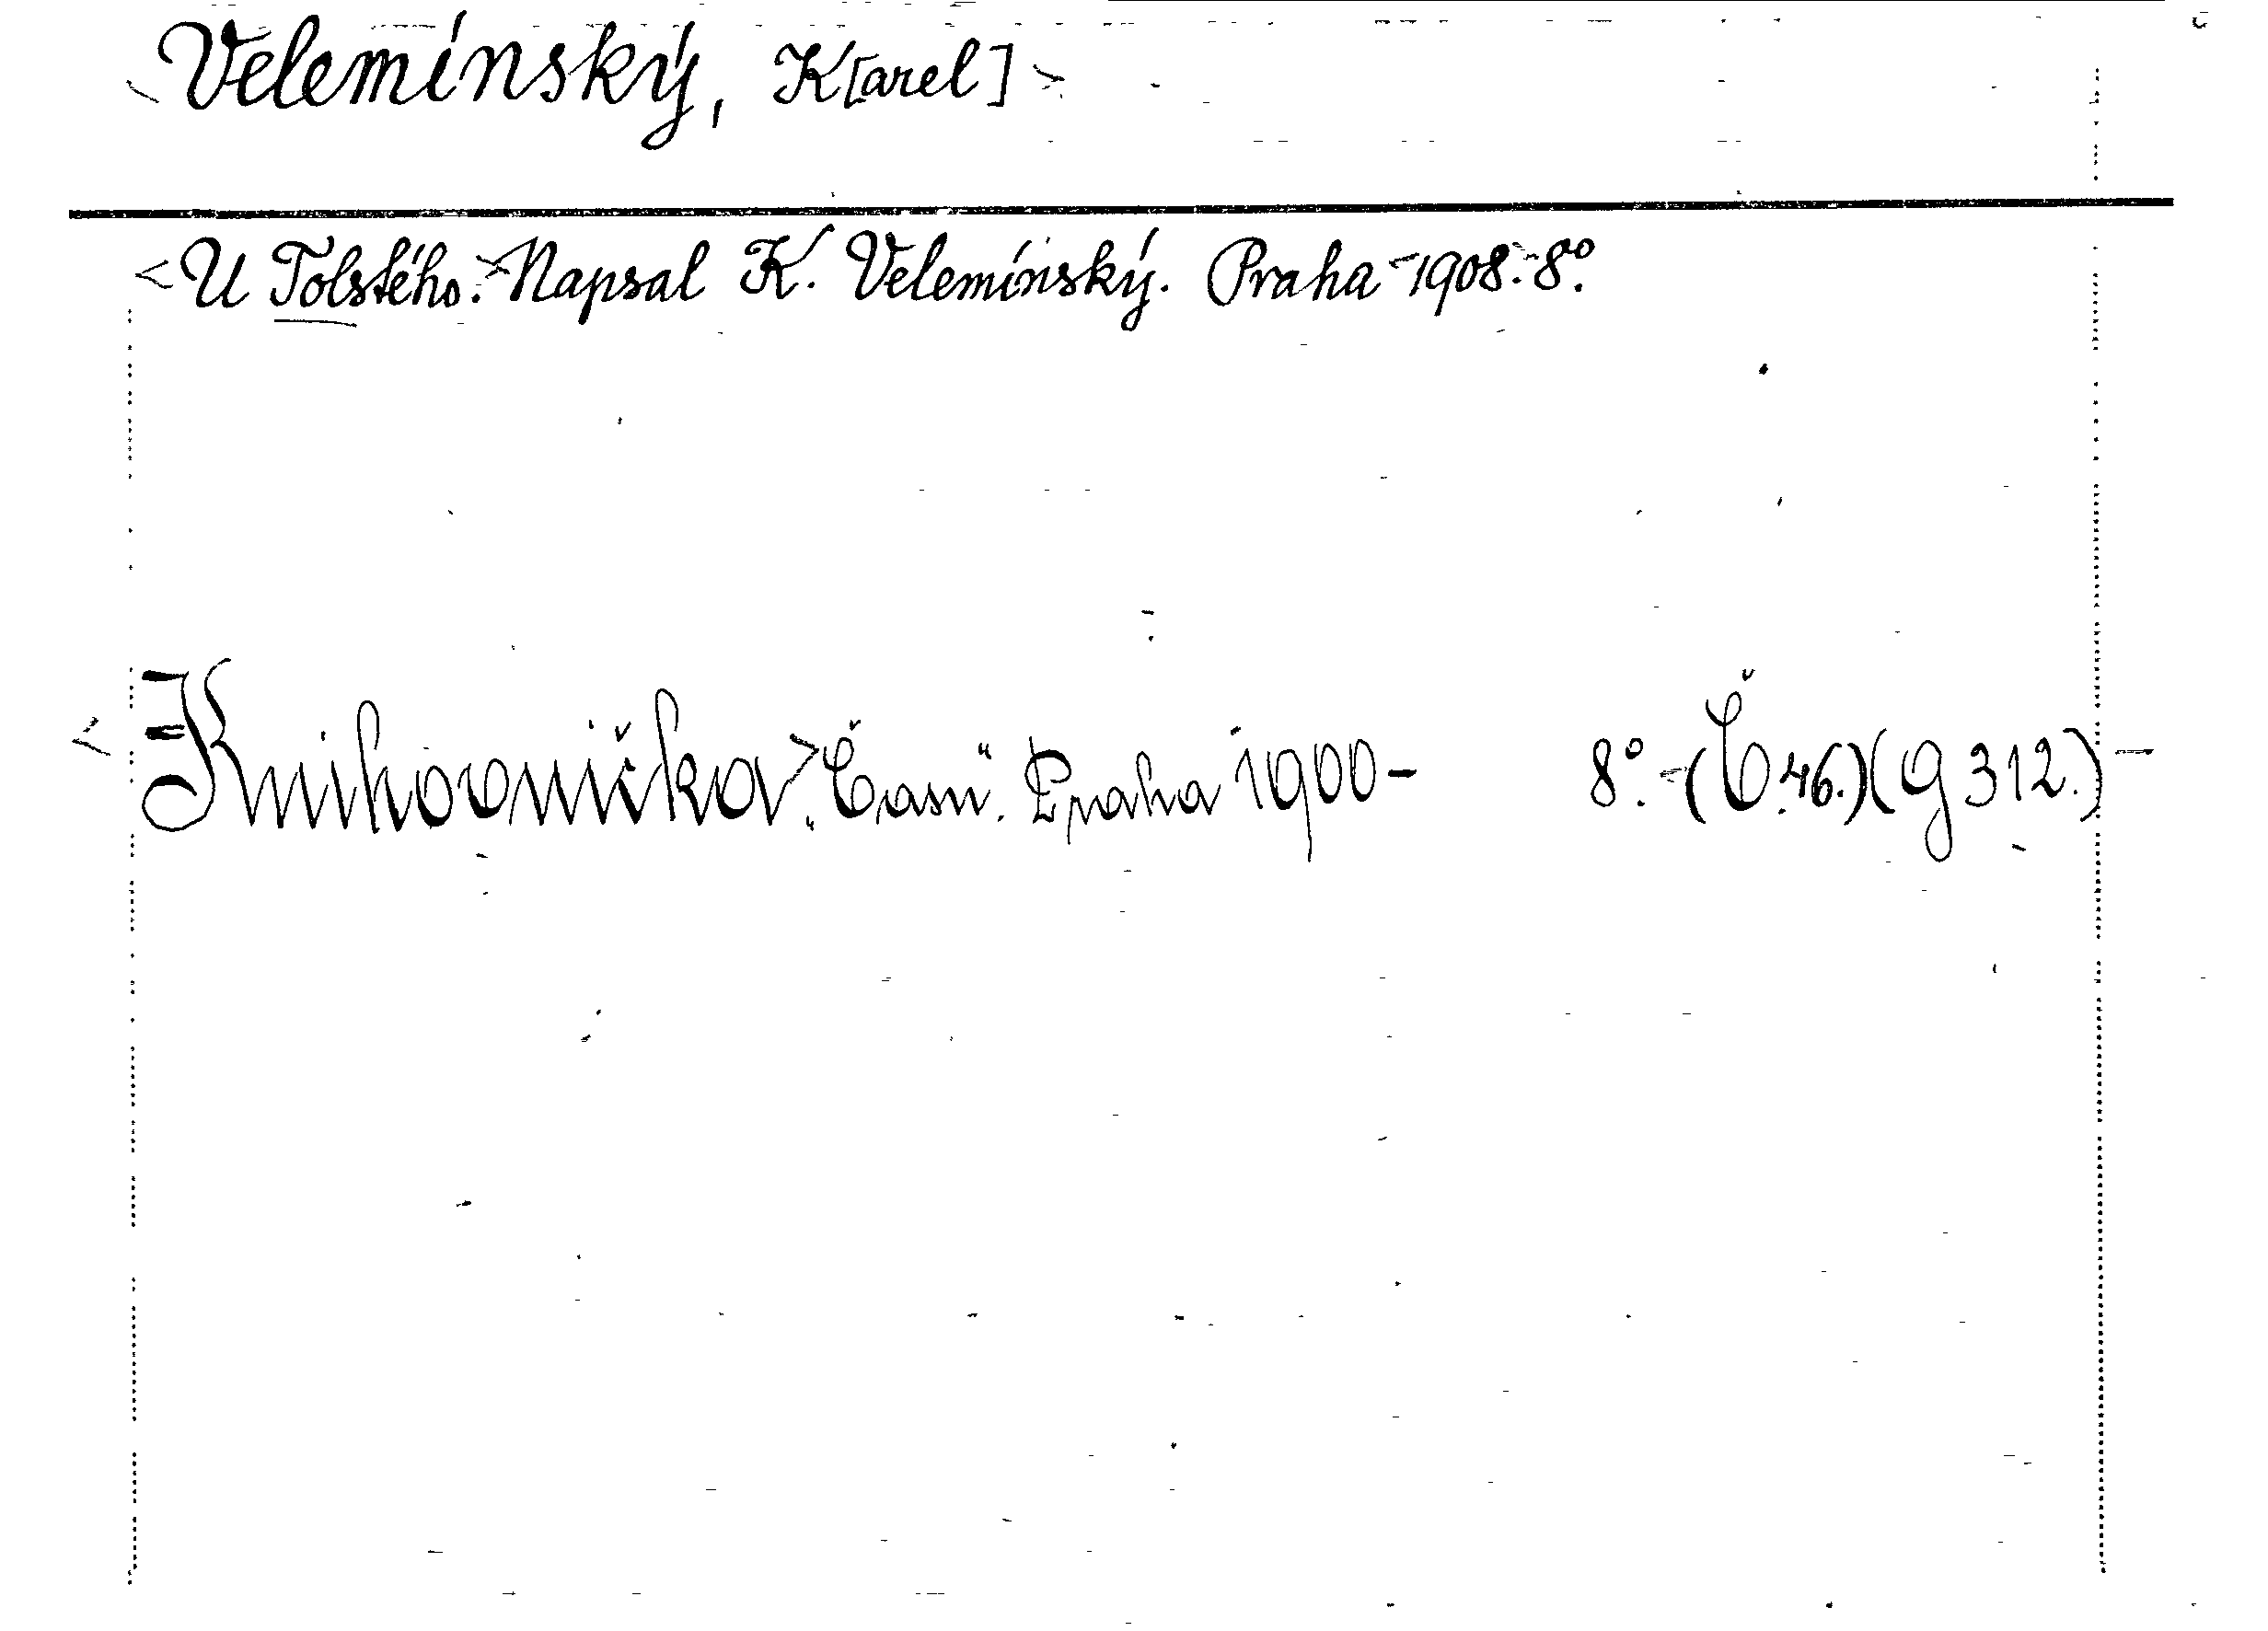 Velemínský, K[arel]
<U Tolstého.> Napsal K. Velemínský. Praha 1908. 8°.
<Knihovnička> „Času“. Praha 1900- 8°. (Č.46.)(G 312.)